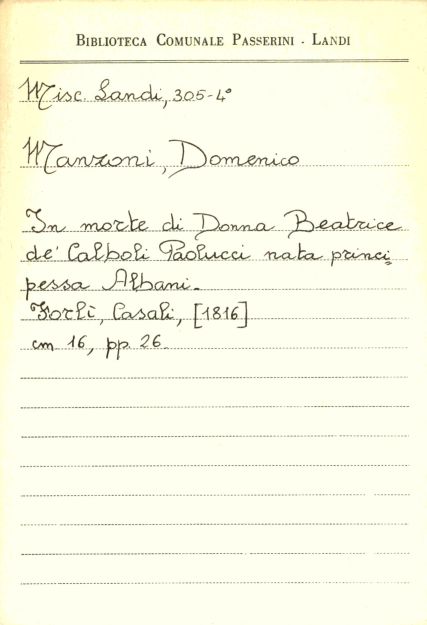 BIBLIOTECA COMUNALE PASSERINI - LANDI
Misc. Landi, 305-4°
Manzoni, Domenico
In morte di Donna Beatrice
de' Calboli Paolucci nata princi=
pessa Albani.
Forlì, Casali, [1816]
cm 16, pp. 26.